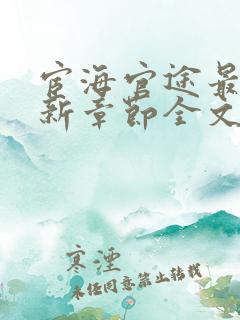 宦海官途最
新章节全文
寒湮
未经同意禁止转载